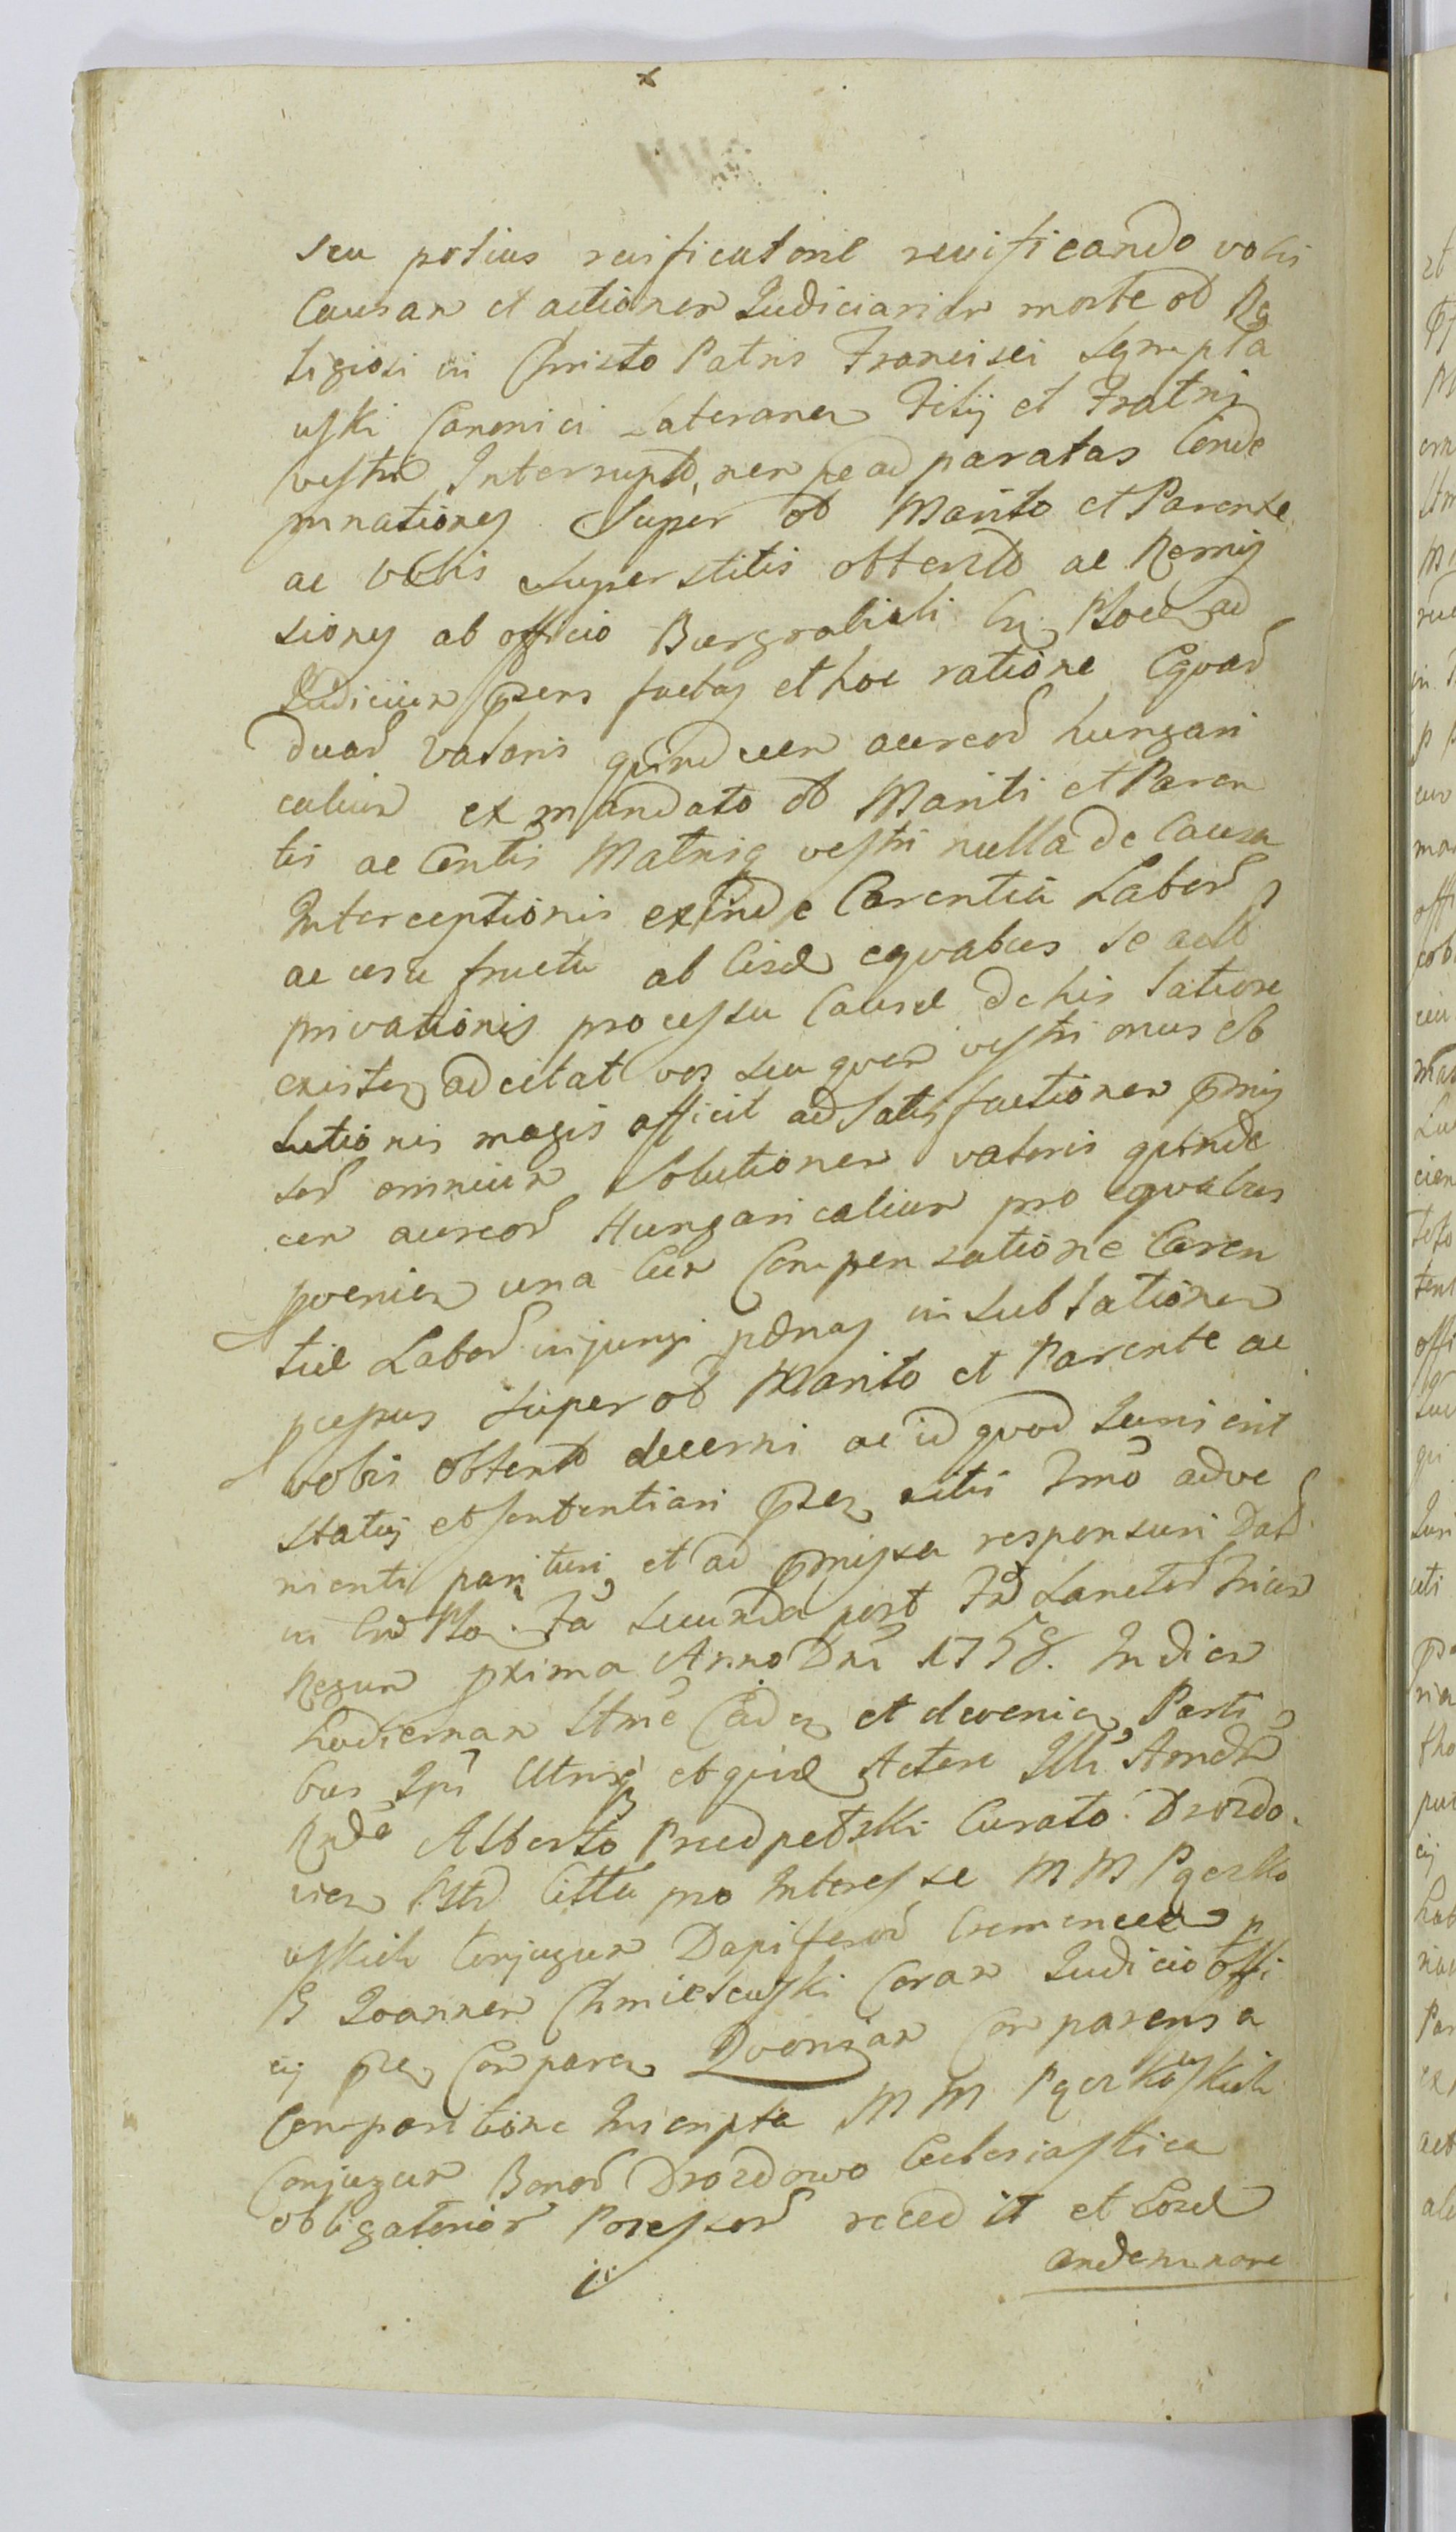 seu potius reuificatorie reuificando vobis
Causam et actionem Judiciariam morte od Re
ligiosi in Christo Patris Francisci Sempła
wski Canonici Lateranen Filij et Fratris
vestri Interrupt, nempe ad paratas Conde
mnationes Super od Marito et Parente
ac vobis Superstitis obtent ac Remis
siones ab officio Burgrabiali Cri Plocen ad
Judicium pzens factas et hoc ratione Equar
duar Valoris quindecem aureor hungari
calium ex mandato od Mariti et Paren
tis ac Conthlis Matrisq vestri nulla de Causa
Interceptionis exinde Carentia Labor
ac usu fructu ab Eisd equabus se act
privationis processu Causae de his latiore
existen adcitat vos seu quem vestri onus ob
lutionis magis afficit ad Satisfactionem pmis
sor omnium Solutionem valoris quinde
cem aureor Hungaricalium pro equabus
pvenien una Cum Compensatione Caren
tiae Labor injungi penas in sublationem
pcessus Super od Marito et Parente ac
vobis obtent decerni ac id quod Juris erit
Statuj et sententiari pzen sitis Imo adve
nienti parituri et ad pmissa responsuri Dat
in Cro Plo. Fa Secunda post Fm Sanctor Trium
Regum pxima Anno Dni 1758. In diem
hodiernam Itme Caden et devenien Parti
bus Ipi Utrisq et quid Actore Illi Amdr
Rndo Alberto Przedpełski Curato Drozdo
vien Istd Citta pro Interesse M M Pączko
wskich Conjugum Dapiferor Cremencen p
G Joannem Chmielewski Coram Judicio offi
cij pzen Comparen Quoniam Comparens a
Compositione Inscripta M M Pączkowskich
Conjugum Bonor Drozdowo Ecclesiastica
obligatorior Possessor recedit et Eosd
Condemnare